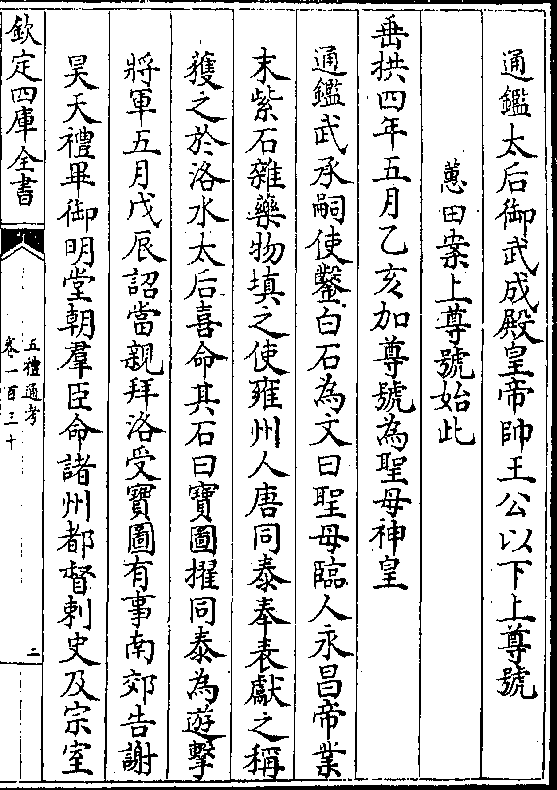 通鑑太后御武成殿皇帝帥王公以下上尊號
蕙田案上尊號始此
垂拱四年五月乙亥加尊號為聖母神皇
通鑑武承嗣使鑿白石為文曰聖母臨人永昌帝業
末紫石雜藥物填之使雍州人唐同泰奉表獻之稱
獲之於洛水太后喜命其石曰寶圖擢同泰為遊擊
將軍五月戊辰詔當親拜洛受寶圖有事南郊告謝
昊天禮畢御明堂朝羣臣命諸州都督刺史及宗室
欽定四庫全書
五禮通考
卷一百三十
二